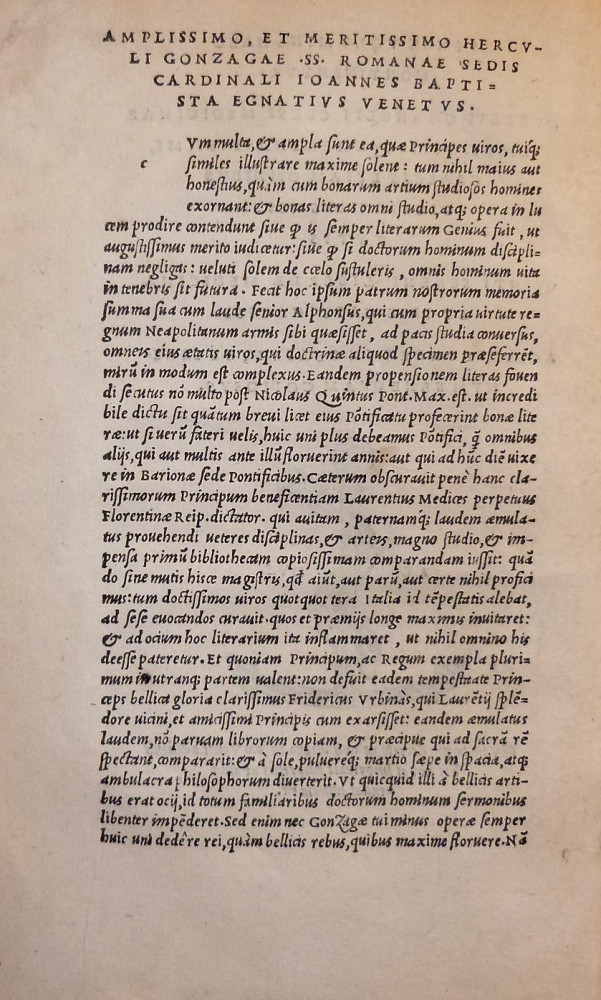 AMPLISSIMO, ET MERITISSIMO HERCV-
LI GONZAGAE .SS. ROMANAE SEDIS
CARDINALI IOANNES BAPTI=
STA EGNATIVS VENETVS.
c Vm multa, & ampla sunt ea, quæ Principes uiros, tuiq́;
similes illustrare maxime solent: tum nihil maius aut
honestius, quàm cum bonarum artium studiosos homines
exornant: & bonas literas omni studio, atq; opera in lu
cem prodire contendunt siue ꝙ is semper literarum Genius fuit, ut
augustissimus merito iudicetur: siue ꝙ si doctorum hominum discipli-
nam negligas: ueluti solem de cœlo sustuleris, omnis hominum uita
in tenebris sit futura. Fecit hoc ipsum patrum nostrorum memoria
summa sua cum laude senior Alphonsus, qui cum propria uirtute re=
gnum Neapolitanum armis sibi quæsisset, ad pacis studia conuersus,
omneis eius ætatis uiros, qui doctrinæ aliquod specimen præseferrēt,
mirū in modum est complexus. Eandem propensionem literas fouen
di secutus nō multo pòst Nicolaus Quintus Pont. Max. est. ut incredi
bile dictu sit quātum breui licet eius Pōtificatu profecerint bonæ lite
ræ: ut si uerū fateri uelis, huic uni plus debeamus Pōtifici, q̄ omnibus
alijs, qui aut multis ante illū floruerint annis: aut qui ad hūc diē uixe
re in Barionæ sede Pontificibus. Cæterum obscurauit penè hanc cla-
rissimorum Principum beneficentiam Laurentius Medices perpetuus
Florentinæ Reip. dictator. qui auitam, paternamq́; laudem æmula-
tus prouehendi ueteres disciplinas, & arteis, magno studio, & im-
pensa primū bibliothecam copiosissimam comparandam iussit: quā
do sine mutis hisce magistris, qđ aiūt, aut parū, aut certe nihil profici
mus: tum doctissimos uiros quotquot tera Italia id tēpestatis alebat,
ad sese euocandos curauit. quos et præmijs longe maximis inuitaret:
& ad ocium hoc literarium ita inflammaret, ut nihil omnino his
deesse pateretur. Et quoniam Principum, ac Regum exempla pluri=
mum in utranq; partem ualent: non defuit eadem tempestate Prin-
ceps bellica gloria clarissimus Fridericus Vrbinàs, qui Laurētij splē=
dore uicini, et amicissimi Principis cum exarsisset: eandem æmulatus
laudem, nō paruam librorum copiam, & præcipue qui ad sacrā rē
spectant, compararit: & à sole, puluereq́; martio sæpe in spacia, atq;
ambulacra philosophorum diuerterit. Vt quicquid illi à bellicis arti-
bus erat ocij, id totum familiaribus doctorum hominum sermonibus
libenter impēderet. Sed enim nec Gonzagæ tui minus operæ semper
huic uni dedêre rei, quàm bellicis rebus, quibus maxime floruere. Nā